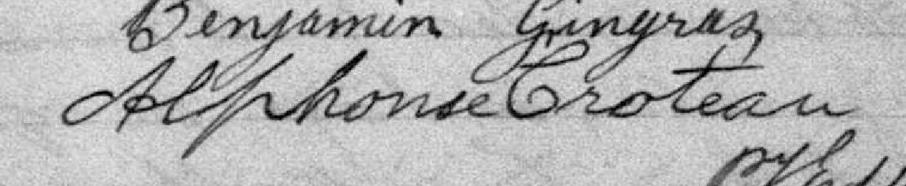 Benjamin Gingras
Alphonse Croteau